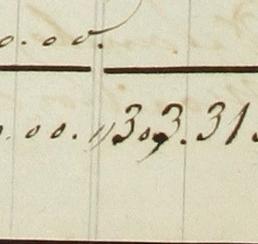 0.00.
.00. 〃303.31